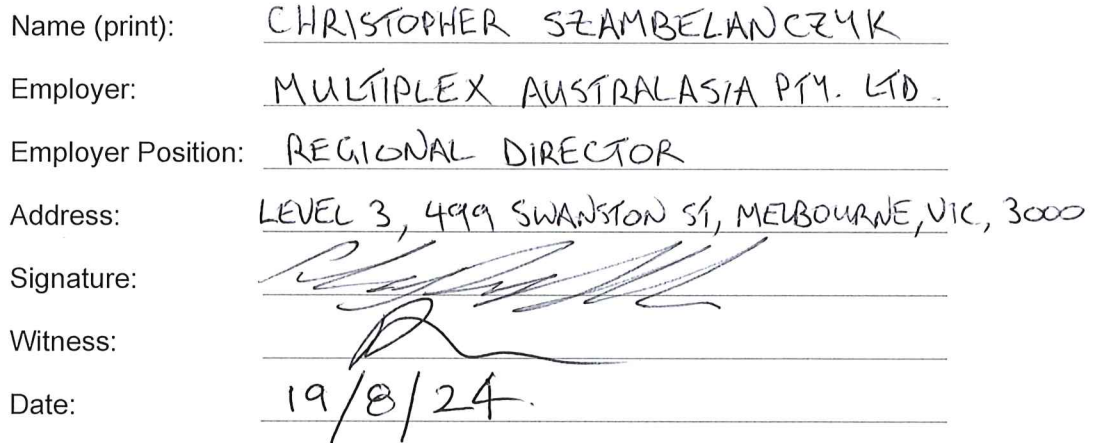 Name (print): CHRISTOPHER SZAMBELANCZYK
Employer: MULTIPLEX AUSTRALASIA PTY. LTD.
Employer Position: REGIONAL DIRECTOR
Address: LEVEL 3, 499 SWANSTON ST, MELBOURNE, VIC, 3000
Signature:
Witness:
Date: 19/8/24.